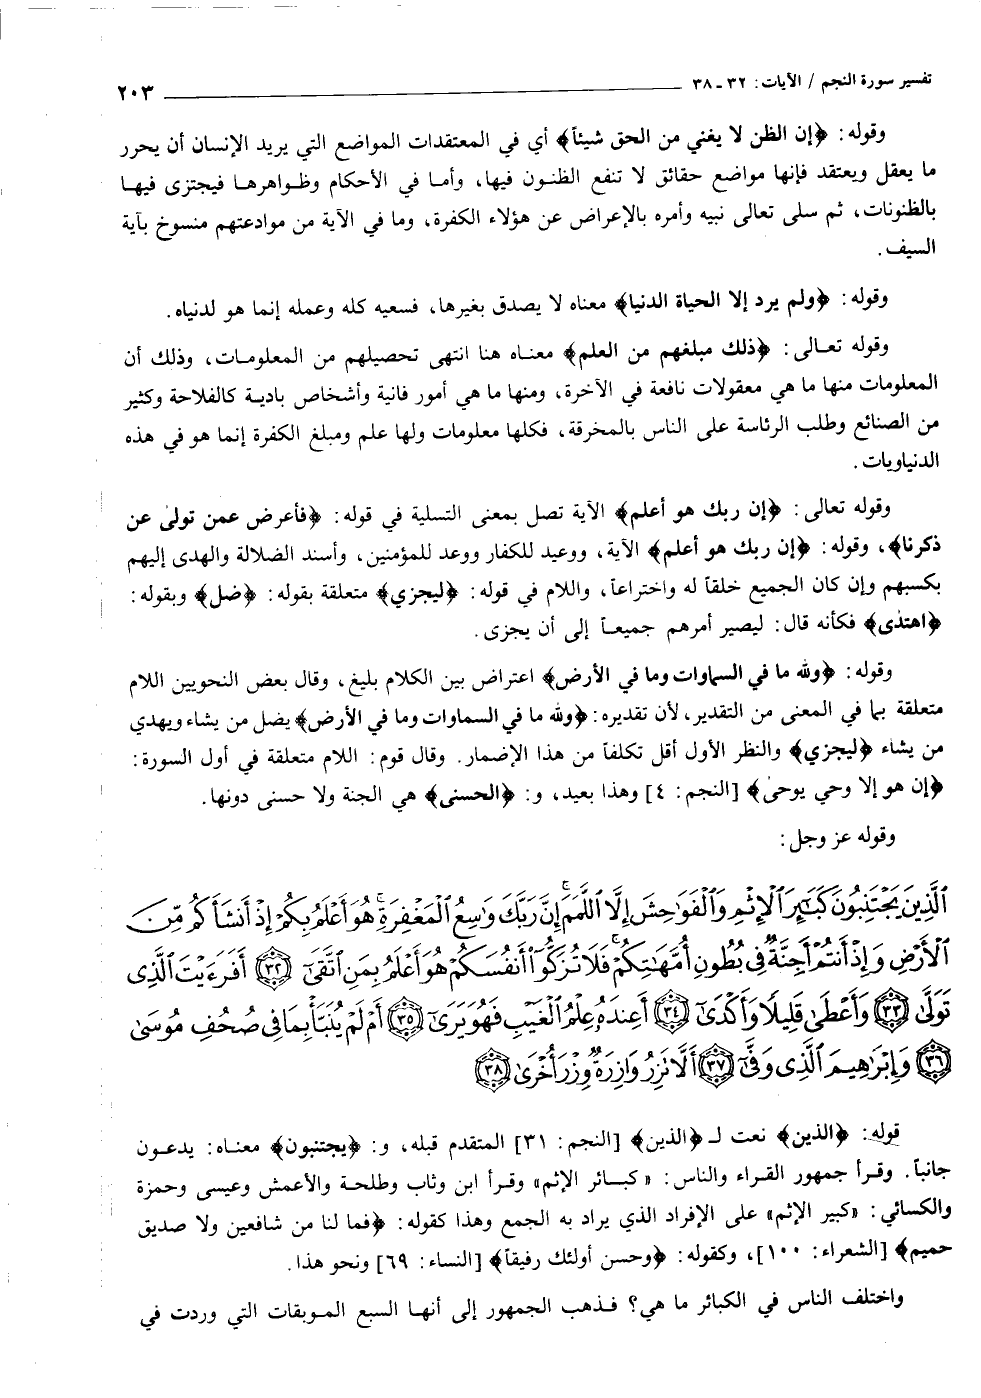 تفسير سورة النجم / الآيات: ٣٢ ـ ٣٨ ٢٠٣
وقوله: ﴿إن الظن لا يغني من الحق شيئاً﴾ أي في المعتقدات المواضع التي يريد الإنسان أن يحرر
ما يعقل ويعتقد فإنها مواضع حقائق لا تنفع الظنون فيها، وأما في الأحكام وظواهرها فيجتزى فيها
بالظنونات، ثم سلى تعالى نبيه وأمره بالإعراض عن هؤلاء الكفرة، وما في الآية من موادعتهم منسوخ بآية
السيف.
وقوله: ﴿ولم يرد إلا الحياة الدنيا﴾ معناه لا يصدق بغيرها، فسعيه كله وعمله إنما هو لدنياه.
وقوله تعالى: ﴿ذلك مبلغهم من العلم﴾ معناه هنا انتهى تحصيلهم من المعلومات، وذلك أن
المعلومات منها ما هي معقولات نافعة في الآخرة، ومنها ما هي أمور فانية وأشخاص بادية كالفلاحة وكثير
من الصنائع وطلب الرئاسة على الناس بالمخرقة، فكلها معلومات ولها علم ومبلغ الكفرة إنما هو في هذه
الدنياويات.
وقوله تعالى: ﴿إن ربك هو أعلم﴾ الآية تصل بمعنى التسلية في قوله: ﴿فأعرض عمن تولىٰ عن
ذكرنا﴾، وقوله: ﴿إن ربك هو أعلم﴾ الآية، ووعيد للكفار ووعد للمؤمنين، وأسند الضلالة والهدى إليهم
بكسبهم وإن كان الجميع خلقاً له واختراعاً، واللام في قوله: ﴿ليجزي﴾ متعلقة بقوله: ﴿ضل﴾ وبقوله:
﴿اهتدٰى﴾ فكأنه قال: ليصير أمرهم جميعاً إلى أن يجزى.
وقوله: ﴿ولله ما في السماوات وما في الأرض﴾ اعتراض بين الكلام بليغ، وقال بعض النحويين اللام
متعلقة بما في المعنى من التقدير، لأن تقديره: ﴿ولله ما في السماوات وما في الأرض﴾ يضل من يشاء ويهدي
من يشاء ﴿ليجزي﴾ والنظر الأول أقل تكلفاً من هذا الإضمار. وقال قوم: اللام متعلقة في أول السورة:
﴿إن هو إلا وحي يوحىٰ﴾ [النجم: ٤] وهذا بعيد، و: ﴿الحسنى﴾ هي الجنة ولا حسنى دونها.
وقوله عز وجل:
ٱلَّذِينَ يَجْتَنِبُونَ كَبَٰٓئِرَ ٱلْإِثْمِ وَٱلْفَوَٰحِشَ إِلَّا ٱللَّمَمَ ۚ إِنَّ رَبَّكَ وَٰسِعُ ٱلْمَغْفِرَةِ ۚ هُوَ أَعْلَمُ بِكُمْ إِذْ أَنشَأَكُم مِّنَ
ٱلْأَرْضِ وَإِذْ أَنتُمْ أَجِنَّةٌ فِى بُطُونِ أُمَّهَٰتِكُمْ ۖ فَلَا تُزَكُّوٓا۟ أَنفُسَكُمْ هُوَ أَعْلَمُ بِمَنِ ٱتَّقَىٰٓ ﴿٣٢﴾ أَفَرَءَيْتَ ٱلَّذِى
تَوَلَّىٰ ﴿٣٣﴾ وَأَعْطَىٰ قَلِيلًا وَأَكْدَىٰٓ ﴿٣٤﴾ أَعِندَهُۥ عِلْمُ ٱلْغَيْبِ فَهُوَ يَرَىٰٓ ﴿٣٥﴾ أَمْ لَمْ يُنَبَّأْ بِمَا فِى صُحُفِ مُوسَىٰ
﴿٣٦﴾ وَإِبْرَٰهِيمَ ٱلَّذِى وَفَّىٰٓ ﴿٣٧﴾ أَلَّا تَزِرُ وَازِرَةٌ وِزْرَ أُخْرَىٰ ﴿٣٨﴾
قوله: ﴿الذين﴾ نعت لـ ﴿الذين﴾ [النجم: ٣١] المتقدم قبله، و: ﴿يجتنبون﴾ معناه: يدعون
جانباً. وقرأ جمهور القراء والناس: «كبائر الإثم» وقرأ ابن وثاب وطلحة والأعمش وعيسى وحمزة
والكسائي: «كبير الإثم» على الإفراد الذي يراد به الجمع وهذا كقوله: ﴿فما لنا من شافعين ولا صديق
حميم﴾ [الشعراء: ١٠٠]، وكقوله: ﴿وحسن أولئك رفيقاً﴾ [النساء: ٦٩] ونحو هذا.
واختلف الناس في الكبائر ما هي؟ فذهب الجمهور إلى أنها السبع الموبقات التي وردت في